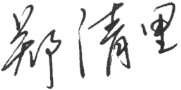 郑清里